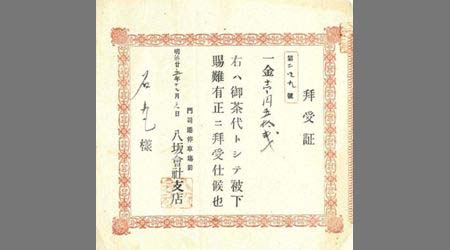 拜受証
第二九號
一金壱円五拾戔
右ハ御茶代トシテ被下
賜難有正ニ拜受仕候也
明治廿五年 月 日
門司港停車場前
八坂會社支店
様